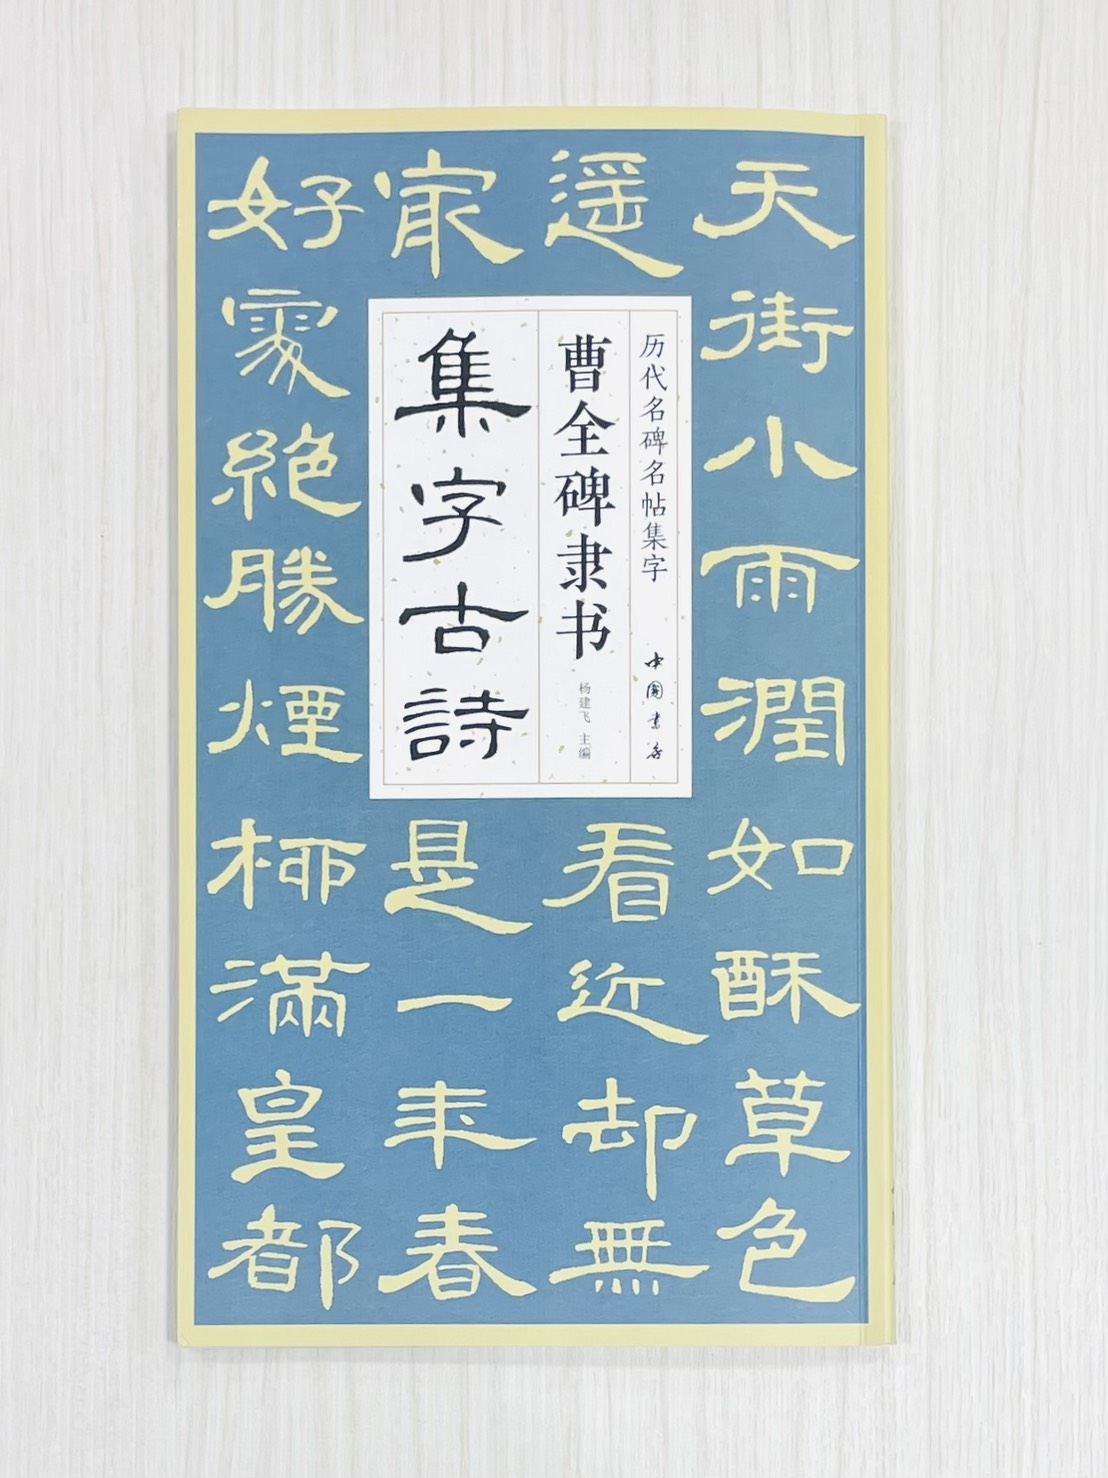 天街小雨潤如酥草色
遥看近却無
最是一年春
好處絶勝煙柳滿皇都
历代名碑名帖集字
中國書店
曹全碑隶书
杨建飞 主编
集字古詩